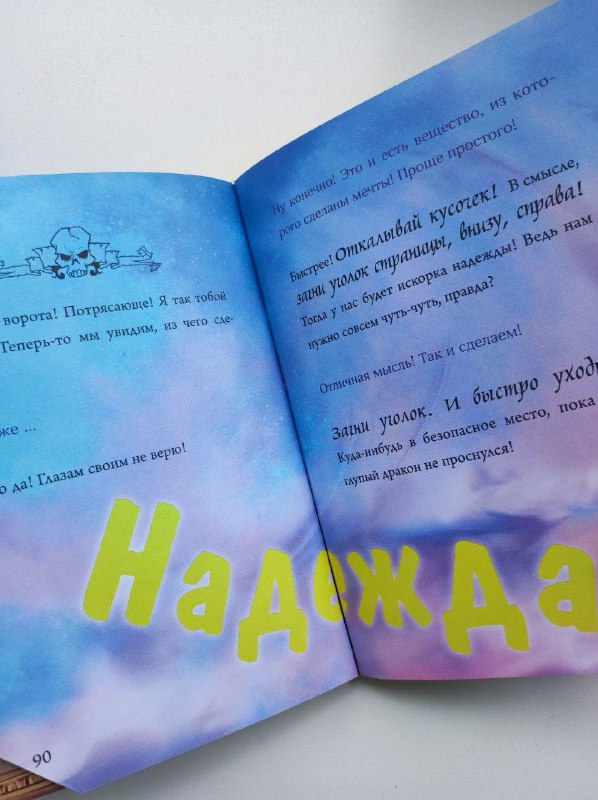 ворота! Потрясающе! Я так тобой
Теперь-то мы увидим, из чего сде-
же ...
о да! Глазам своим не верю!
Ну конечно! Это и есть вещество, из кото-
рого сделаны мечты! Проще простого!
Быстрее! Откалывай кусочек! В смысле,
загни уголок страницы, внизу, справа!
Тогда у нас будет искорка надежды! Ведь нам
нужно совсем чуть-чуть, правда?
Отличная мысль! Так и сделаем!
Загни уголок. И быстро уходи
Куда-нибудь в безопасное место, пока
глупый дракон не проснулся!
Надежда
90